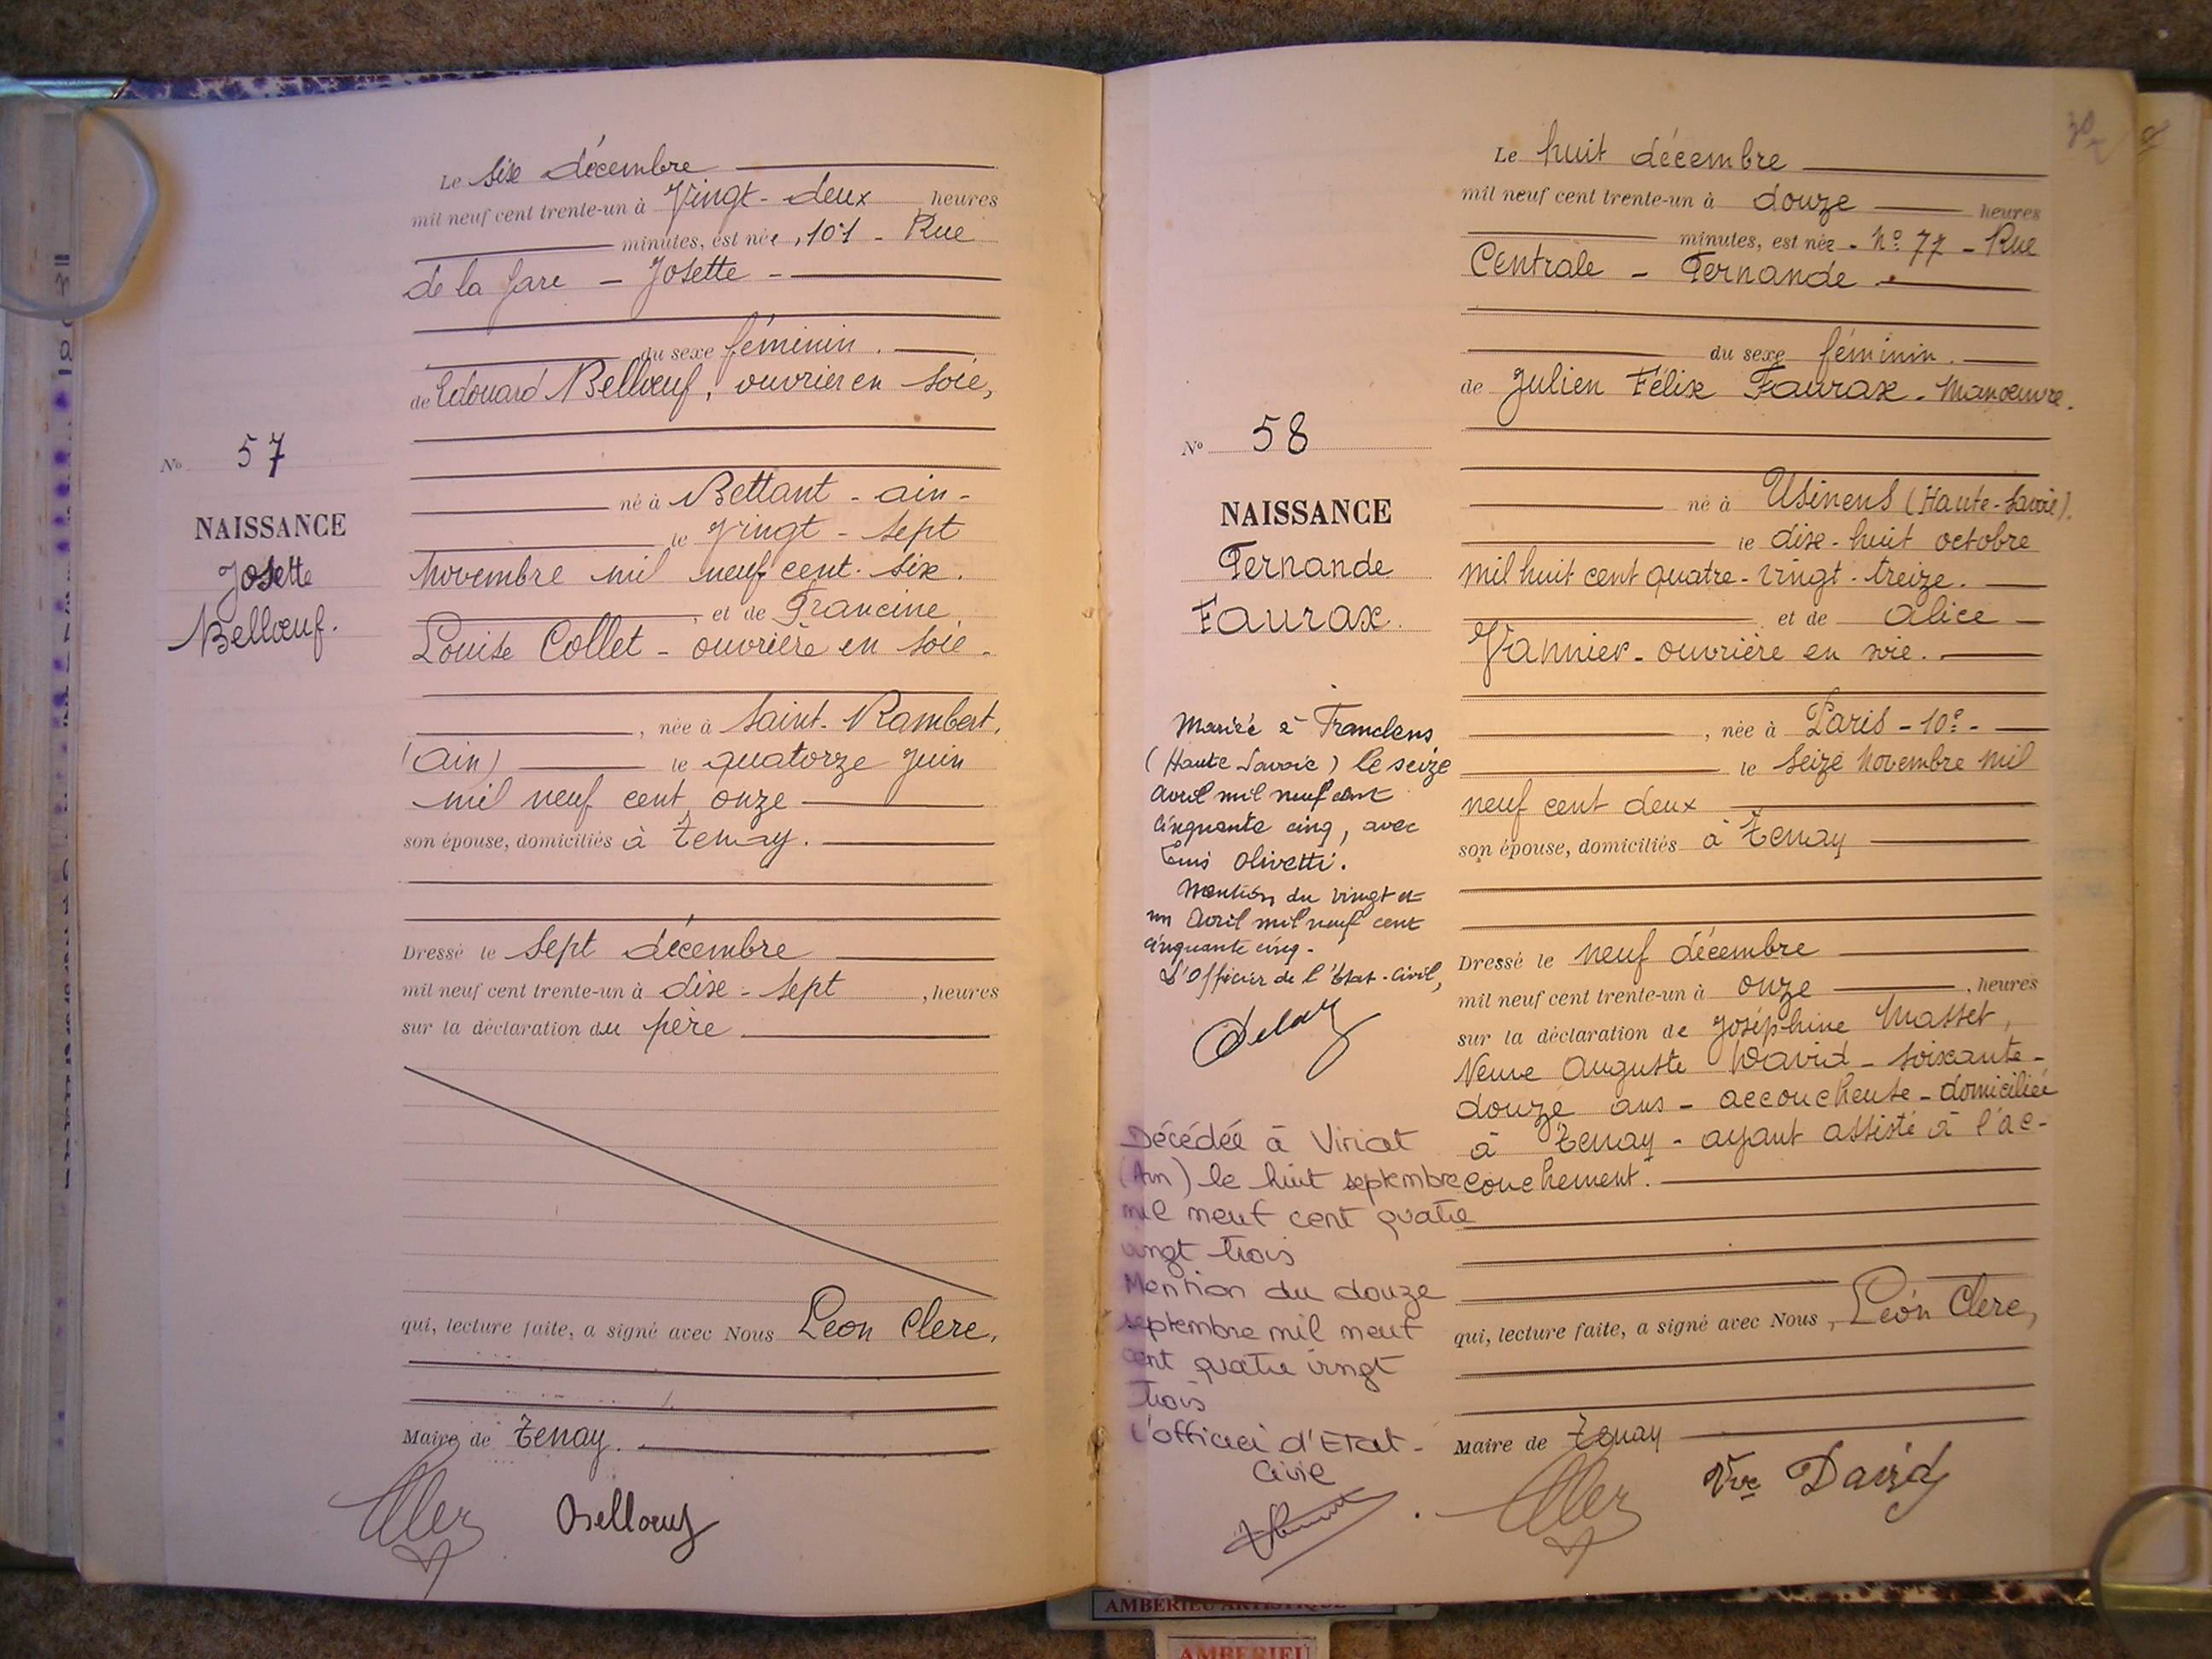 Le six décembre
mil neuf cent trente-un à Vingt-deux heures
minutes, est née, 101 - Rue
de la Gare - Josette -
du sexe féminin.
de Edouard Bellœuf, ouvrier en soie,
né à Bettant - ain -
le Vingt-sept
novembre mil neuf cent six.
, et de Francine
Louise Collet - ouvrière en soie -
, née à Saint-Rambert,
(Ain) le quatorze juin
mil neuf cent onze
son épouse, domiciliés à Tenay.
Dressé le sept décembre
mil neuf cent trente-un à dix-sept , heures
sur la déclaration du père
qui, lecture faite, a signé avec Nous Léon Clerc,
Maire de Tenay.
Bellœuf
No 57
NAISSANCE
Josette
Bellœuf.
Le huit décembre
mil neuf cent trente-un à douze heures
minutes, est née - No 77 - Rue
Centrale - Fernande -
du sexe féminin.
de Julien Félix Faurax - Manœuvre.
né à Usinens (Haute-Savoie).
le dix-huit octobre
mil huit cent quatre-vingt-treize.
et de Alice
Vannier - ouvrière en soie.
, née à Paris - 10e -
le seize novembre mil
neuf cent deux
son épouse, domiciliés à Tenay
Dressé le neuf décembre
mil neuf cent trente-un à onze , heures
sur la déclaration de Joséphine Masset,
Veuve Auguste David - soixante-
douze ans - accoucheuse - domiciliée
à Tenay - ayant assisté à l'ac-
couchement.
qui, lecture faite, a signé avec Nous, Léon Clerc,
Maire de Tenay
Vve David
No 58
NAISSANCE
Fernande
Faurax.
Mariée à Franclens
(Haute Savoie) le seize
Avril mil neuf cent
cinquante cinq, avec
Louis Olivetti.
Mention du vingt et
un Avril mil neuf cent
cinquante cinq -
L'Officier de l'Etat-Civil,
Décédée à Viriat
(Ain) le huit septembre
mil neuf cent quatre
vingt trois
Mention du douze
septembre mil neuf
cent quatre vingt
trois
L'officier d'Etat-
Civil
AMBERIEU ARTISTIQUE
AMBERIEU